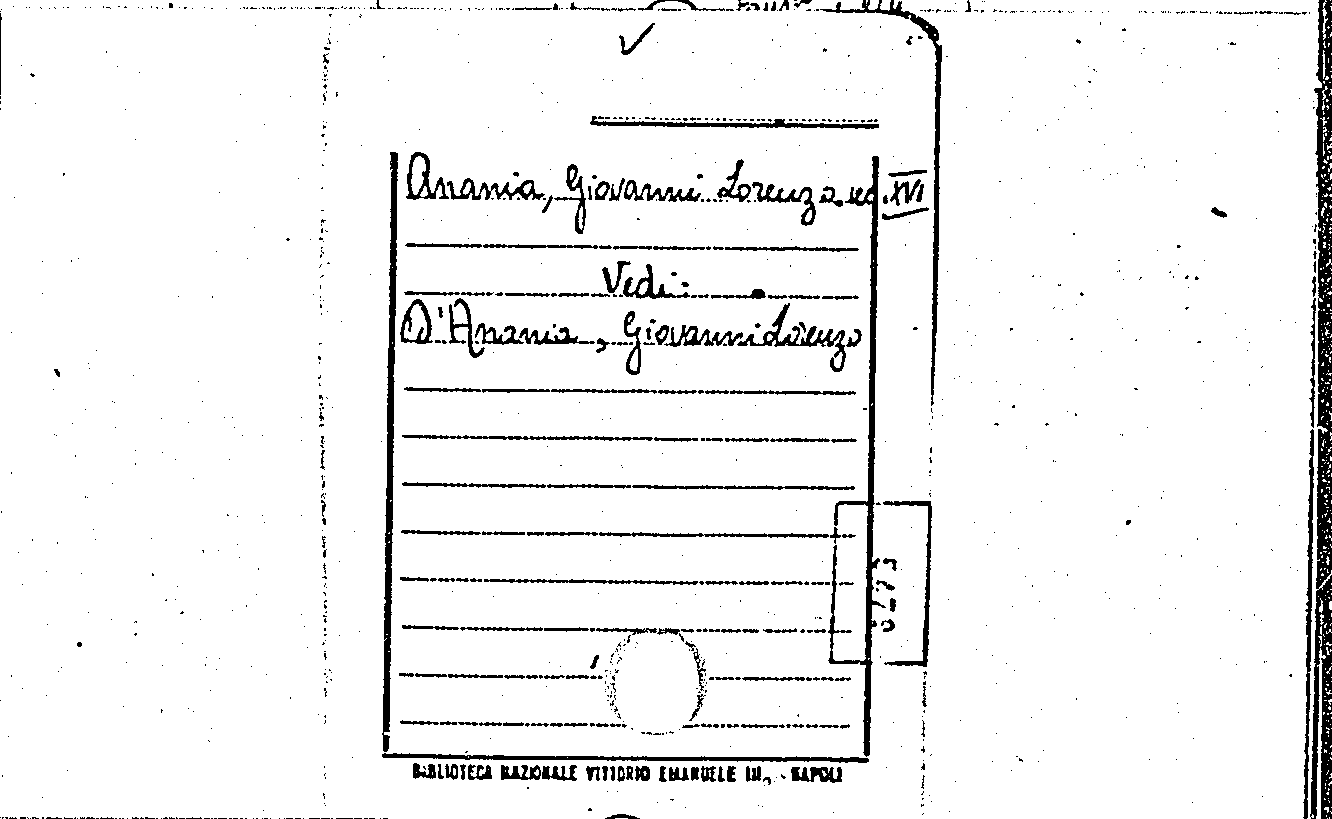 Anania, Giovanni Lorenzo sec. XVI
Vedi:
D'Anania, Giovanni Lorenzo
BIBLIOTECA NAZIONALE VITTORIO EMANUELE III, - NAPOLI